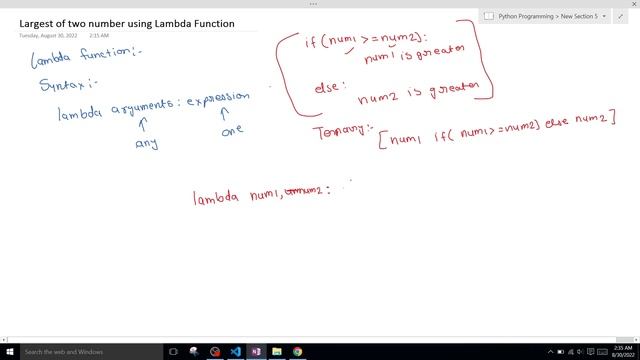 Largest of two number using Lambda Function
Tuesday, August 30, 2022 2:15 AM
Python Programming > New Section 5
Lambda function:-
Syntax:-
lambda arguments: expression
any
one
if(num1 >= num2):
num1 is greater
else:
num2 is greater
Ternary:-
[num1 if( num1>=num2) else num2]
lambda num1, num2:
Search the web and Windows
2:35 AM
8/30/2022